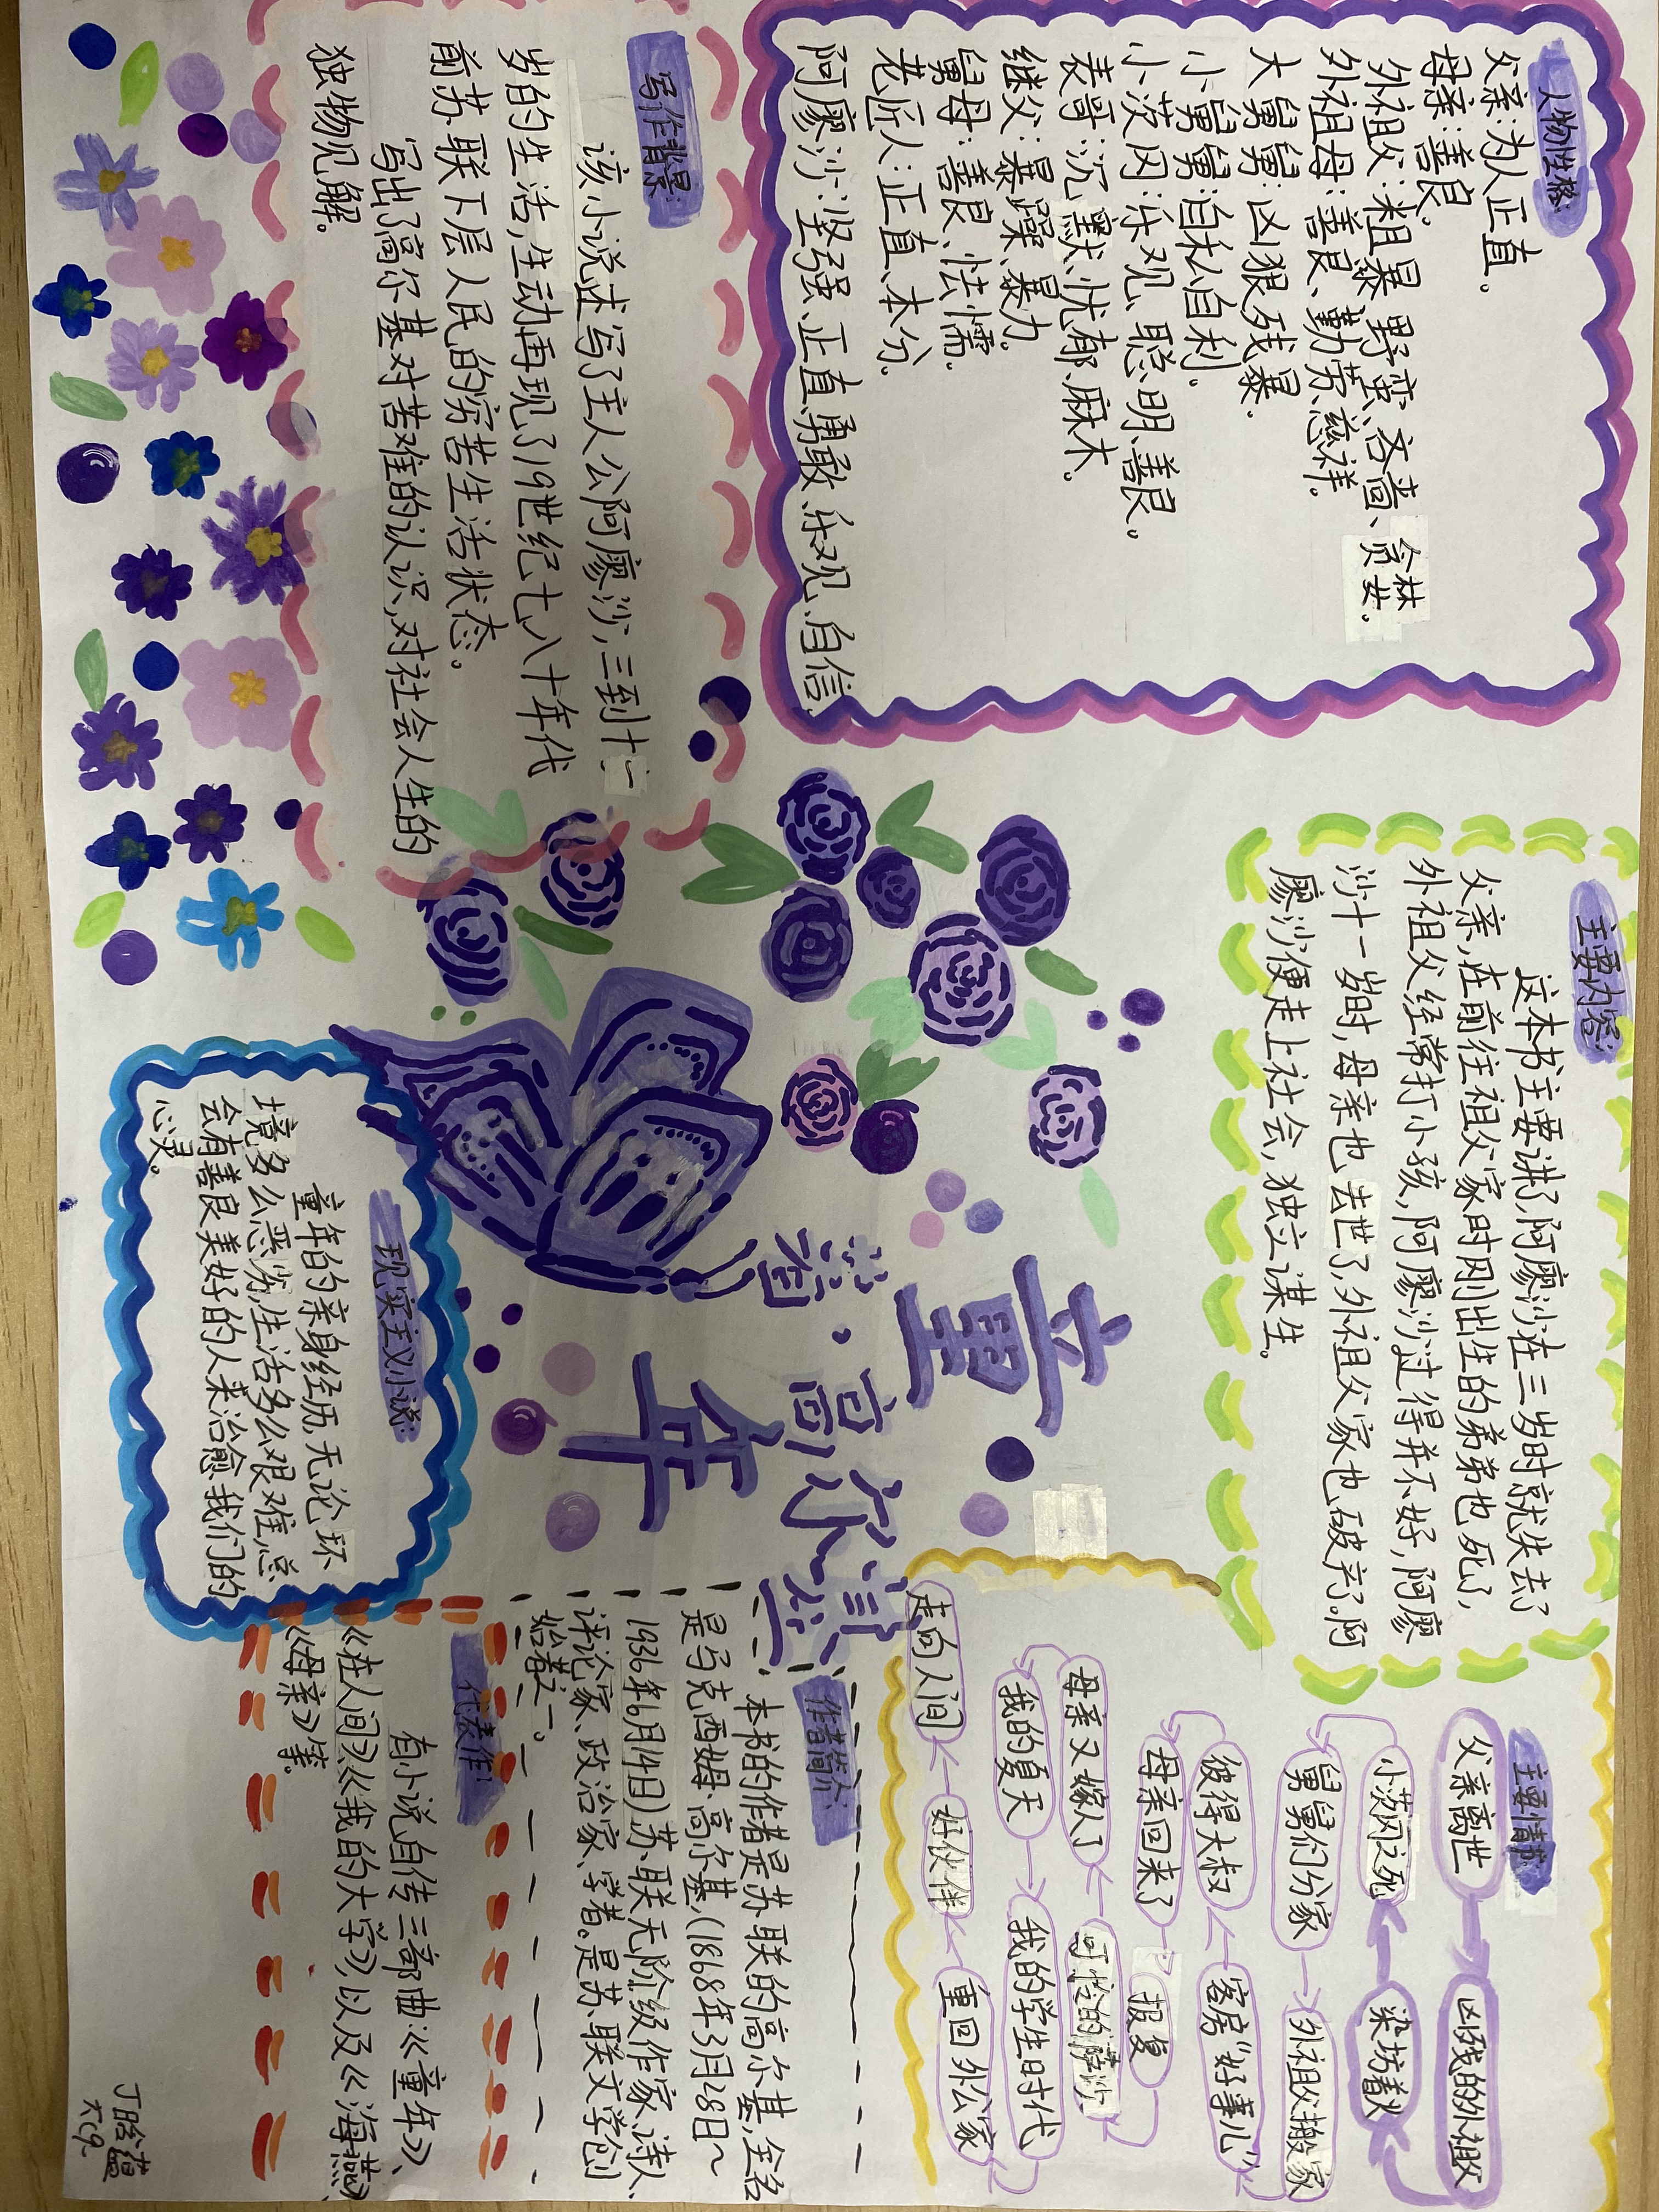 人物性格:
父亲:为人正直。
母亲:善良。
外祖父:粗暴、野蛮、吝啬、贪婪。
外祖母:善良、勤劳、慈祥。
大舅舅:凶狠残暴.
小舅舅:自私自利.
小茨冈:乐观、聪明、善良。
表哥:沉默、忧郁、麻木。
继父:暴躁、暴力。
舅母:善良、怯懦.
老匠人:正直、本分.
阿廖沙:坚强、正直、勇敢、乐观、自信.
主要内容:
这本书主要讲了,阿廖沙在三岁时就失去了
父亲,在前往祖父家时刚出生的弟弟也死了,
外祖父经常打小孩,阿廖沙过得并不好,阿廖
沙十一岁时,母亲也去世了,外祖父家也破产了.阿
廖沙便走上社会,独立谋生。
主要情节:
父亲离世
凶残的外祖父
小茨冈之死
染坊着火
舅舅们分家
外祖父搬家
彼得大叔
客房“好事儿”
母亲回来了
报复
母亲又嫁人了
可怜的萨沙
我的夏天
我的学生时代
走向人间
好伙伴
重回外公家
写作背景:
该小说述写了主人公阿廖沙,三到十一
岁的生活,生动再现了19世纪七、八十年代
前苏联下层人民的穷苦生活状态。
写出了高尔基对苦难的认识,对社会人生的
独物见解。
童年
著·高尔基
作者简介:
本书的作者是苏联的高尔基,全名
是马克西姆·高尔基,(1868年3月28日~
1936年6月14日)苏联无阶级作家、诗人、
评论家、政治家、学者。是苏联文学创
始者之一。
现实主义小说:
童年的亲身经历,无论环
境多么恶劣,生活多么艰难,总
会有善良美好的人来治愈我们的
心灵。
代表作:
有小说自传三部曲:《童年》、
《在人间》《我的大学》,以及《海燕》
《母亲》等。